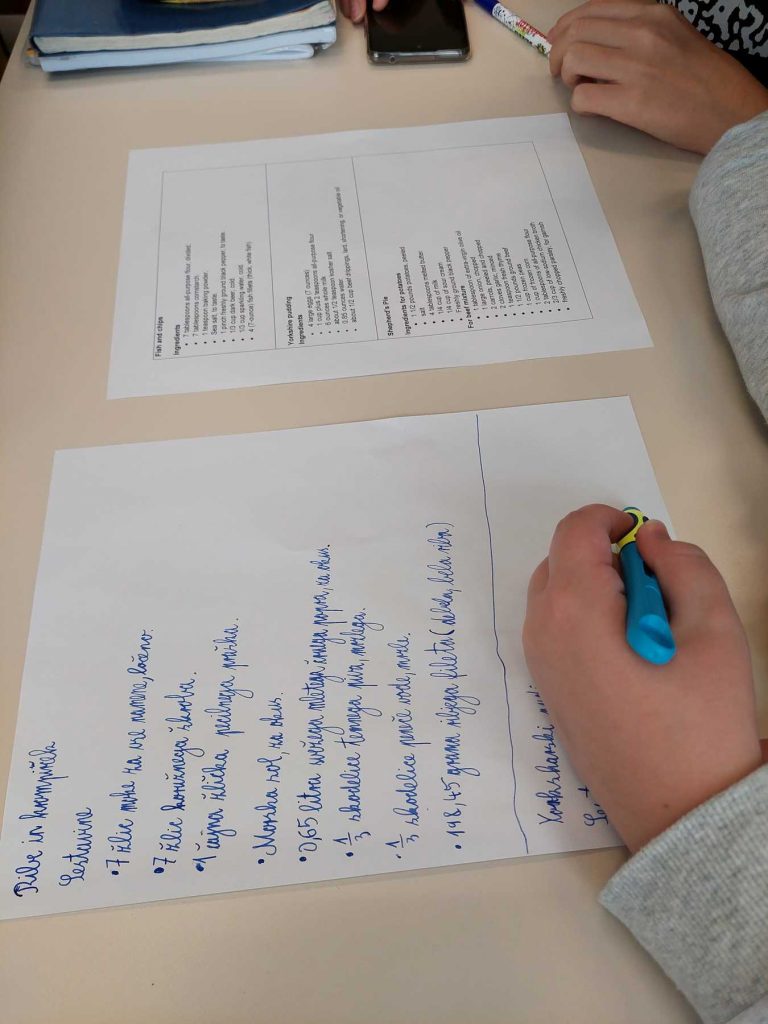 Fish and chips
Ingredients
• 7 tablespoons all-purpose flour, divided.
• 7 tablespoons cornstarch.
• 1 teaspoon baking powder.
• Sea salt, to taste.
• 1 pinch freshly ground black pepper, to taste.
• 1/3 cup dark beer, cold.
• 1/3 cup sparkling water, cold.
• 4 (7-ounce) fish fillets (thick, white fish)
Yorkshire pudding
Ingredients
• 4 large eggs (7 ounces)
• 1 cup plus 2 teaspoons all-purpose flour
• 6 ounces whole milk
• about 1/2 teaspoon kosher salt
• 0.85 ounces water.
• about 1/2 cup beef drippings, lard, shortening, or vegetable oil
Shepherd's Pie
Ingredients for potatoes
• 1 1/2 pounds potatoes, peeled
• salt
• 4 tablespoons melted butter
• 1/4 cup of milk
• 1/4 cup of sour cream
• Freshly ground black pepper
For beef mixture
• 1 tablespoon of extra-virgin olive oil
• 1 large onion, chopped
• 2 carrots, peeled and chopped
• 2 cloves garlic, minced
• 1 teaspoon fresh thyme
• 1 1/2 pounds ground beef
• 1 1/2 frozen peas
• 1 cup of frozen corn
• 2 tablespoons of all-purpose flour
• 2/3 cup of low-sodium chicken broth
• freshly chopped parsley for garnish
Ribe in krompirček
Sestavine
• 7 žlic moke za vse namene, ločeno.
• 7 žlic koruznega škroba.
• 1 čajna žlička pecilnega praška.
• Morska sol, na okus.
• 0,65 litra svežega mletega črnega popra, na okus.
• 1/3 skodelice temnega piva, mrzlega.
• 1/3 skodelice peneče vode, mrzle.
• 198,45 grama ribjega fileta (debela, bela riba)
Yorksharski